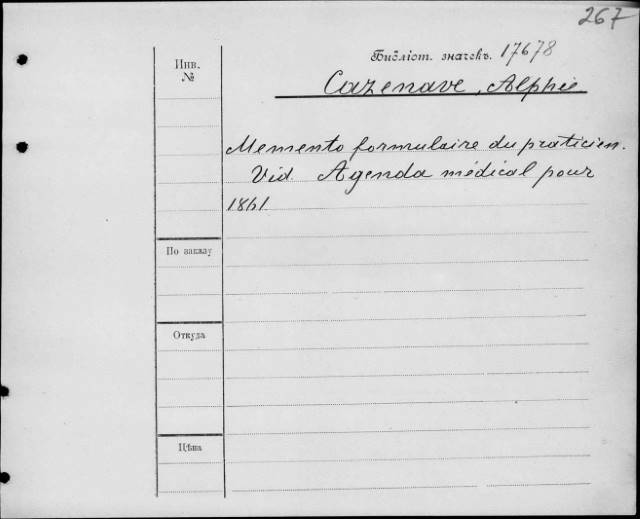 267
Инв.
№
Библіот. значекъ. 17678
Cazenave, Alphée
Memento formulaire du praticien.
Vid. Agenda médical pour
1861
По заказу
Откуда
Цѣна